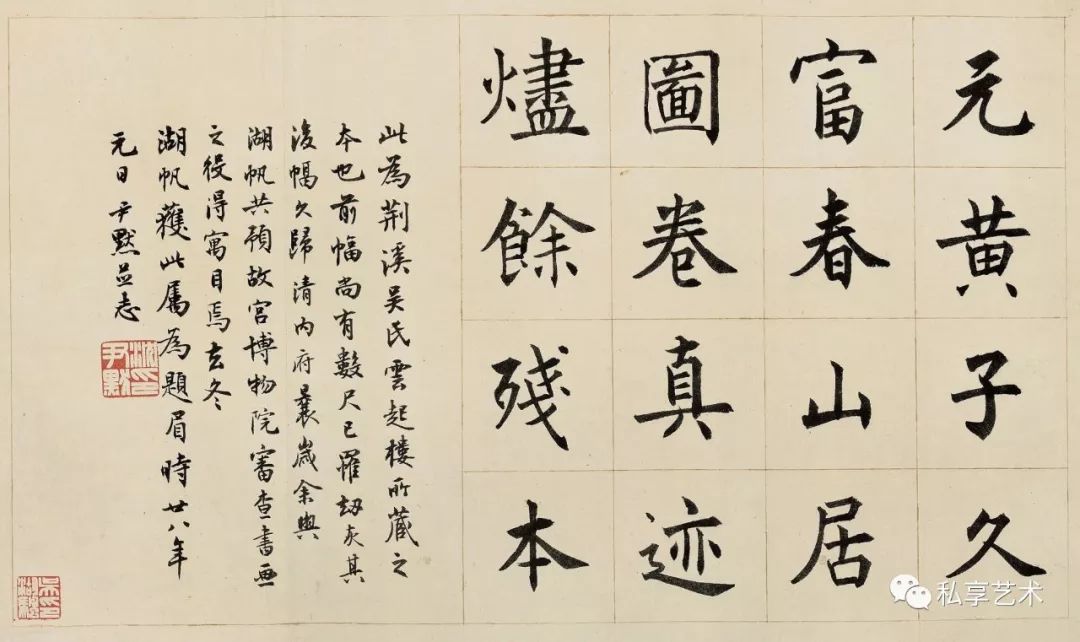 元黃子久
富春山居
圖卷真迹
燼餘殘本
此為荆溪吴氏雲起樓所藏之
本也前幅尚有數尺已罹刼灰其
後幅久歸清内府曩歲余與
湖帆共預故宫博物院審查書画
之役得寓目焉去冬
湖帆獲此属為題眉時廿八年
元日 尹默並志
沈尹默印
吴湖帆印
私享艺术